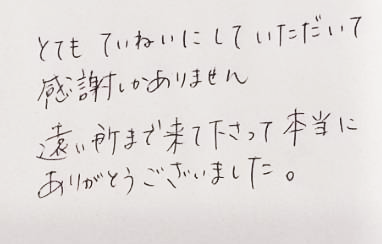 とても ていねいにして いただいて
感謝しかありません
遠い所まで来て下さって 本当に
ありがとうございました。